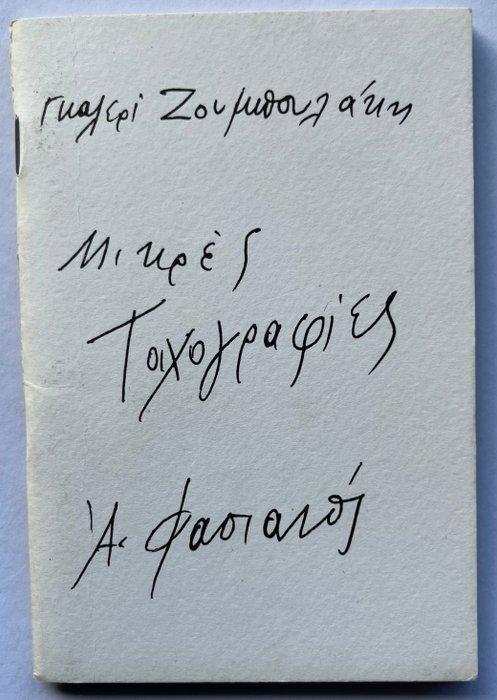 Γκαλερί Ζουμπουλάκη
Μικρές
Τοιχογραφίες
Ἀ. Φασιανός